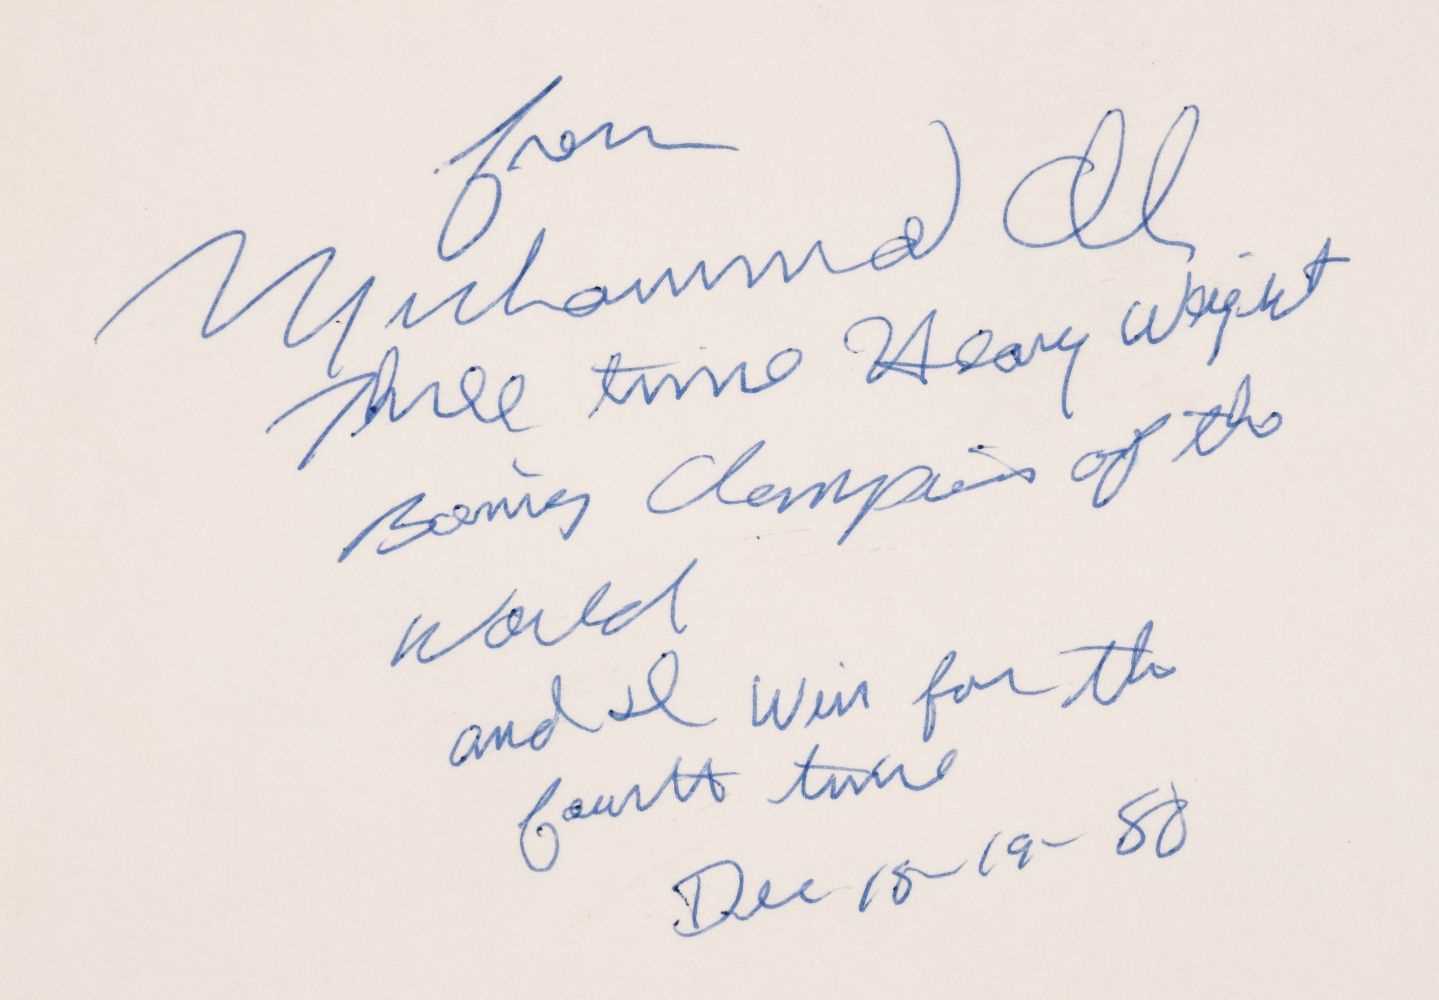 from
Muhammad Ali
Three time Heavy Weight
Boxing Champion of the
World
and I win for the
fourth time
Dec 18-19-80